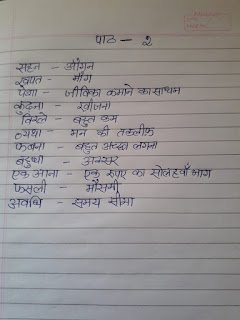 पाठ - 2
सहन - आँगन
खपत - माँग
पेशा - जीविका कमाने का साधन
कुढ़ना - खीजना
विरले - बहुत कम
व्यथा - मन की तकलीफ
फबना - बहुत अच्छा लगना
बहुधा - अक्सर
एक आना - एक रुपए का सोलहवाँ भाग
फसली - मौसमी
अवधि - समय सीमा